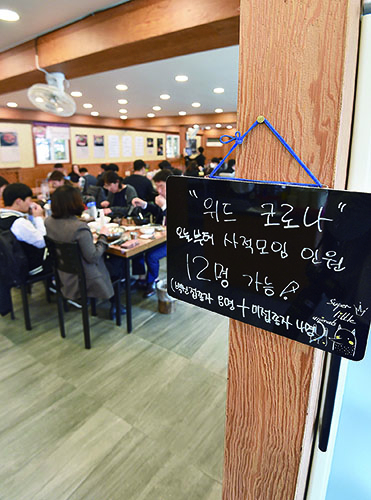 " 위드 코로나 "
오늘부터 사적모임 인원
12명 가능!
(백신접종자 8명 + 미접종자 4명)
Super
little
animals